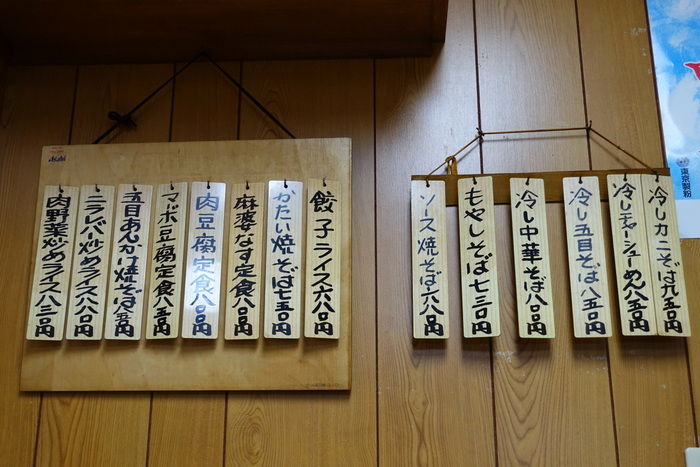 冷しカニそば九五〇円
冷しチャーシューめん八五〇円
冷し五目そば八五〇円
冷し中華そば八〇〇円
もやしそば七三〇円
ソース焼そば六八〇円
餃子ライス六八〇円
かたい焼そば七五〇円
麻婆なす定食八〇〇円
肉豆腐定食八〇〇円
マーボ豆腐定食八五〇円
五目あんかけ焼そば八五〇円
ニラレバー炒めライス八八〇円
肉野菜炒めライス八三〇円
Asahi
東京製粉